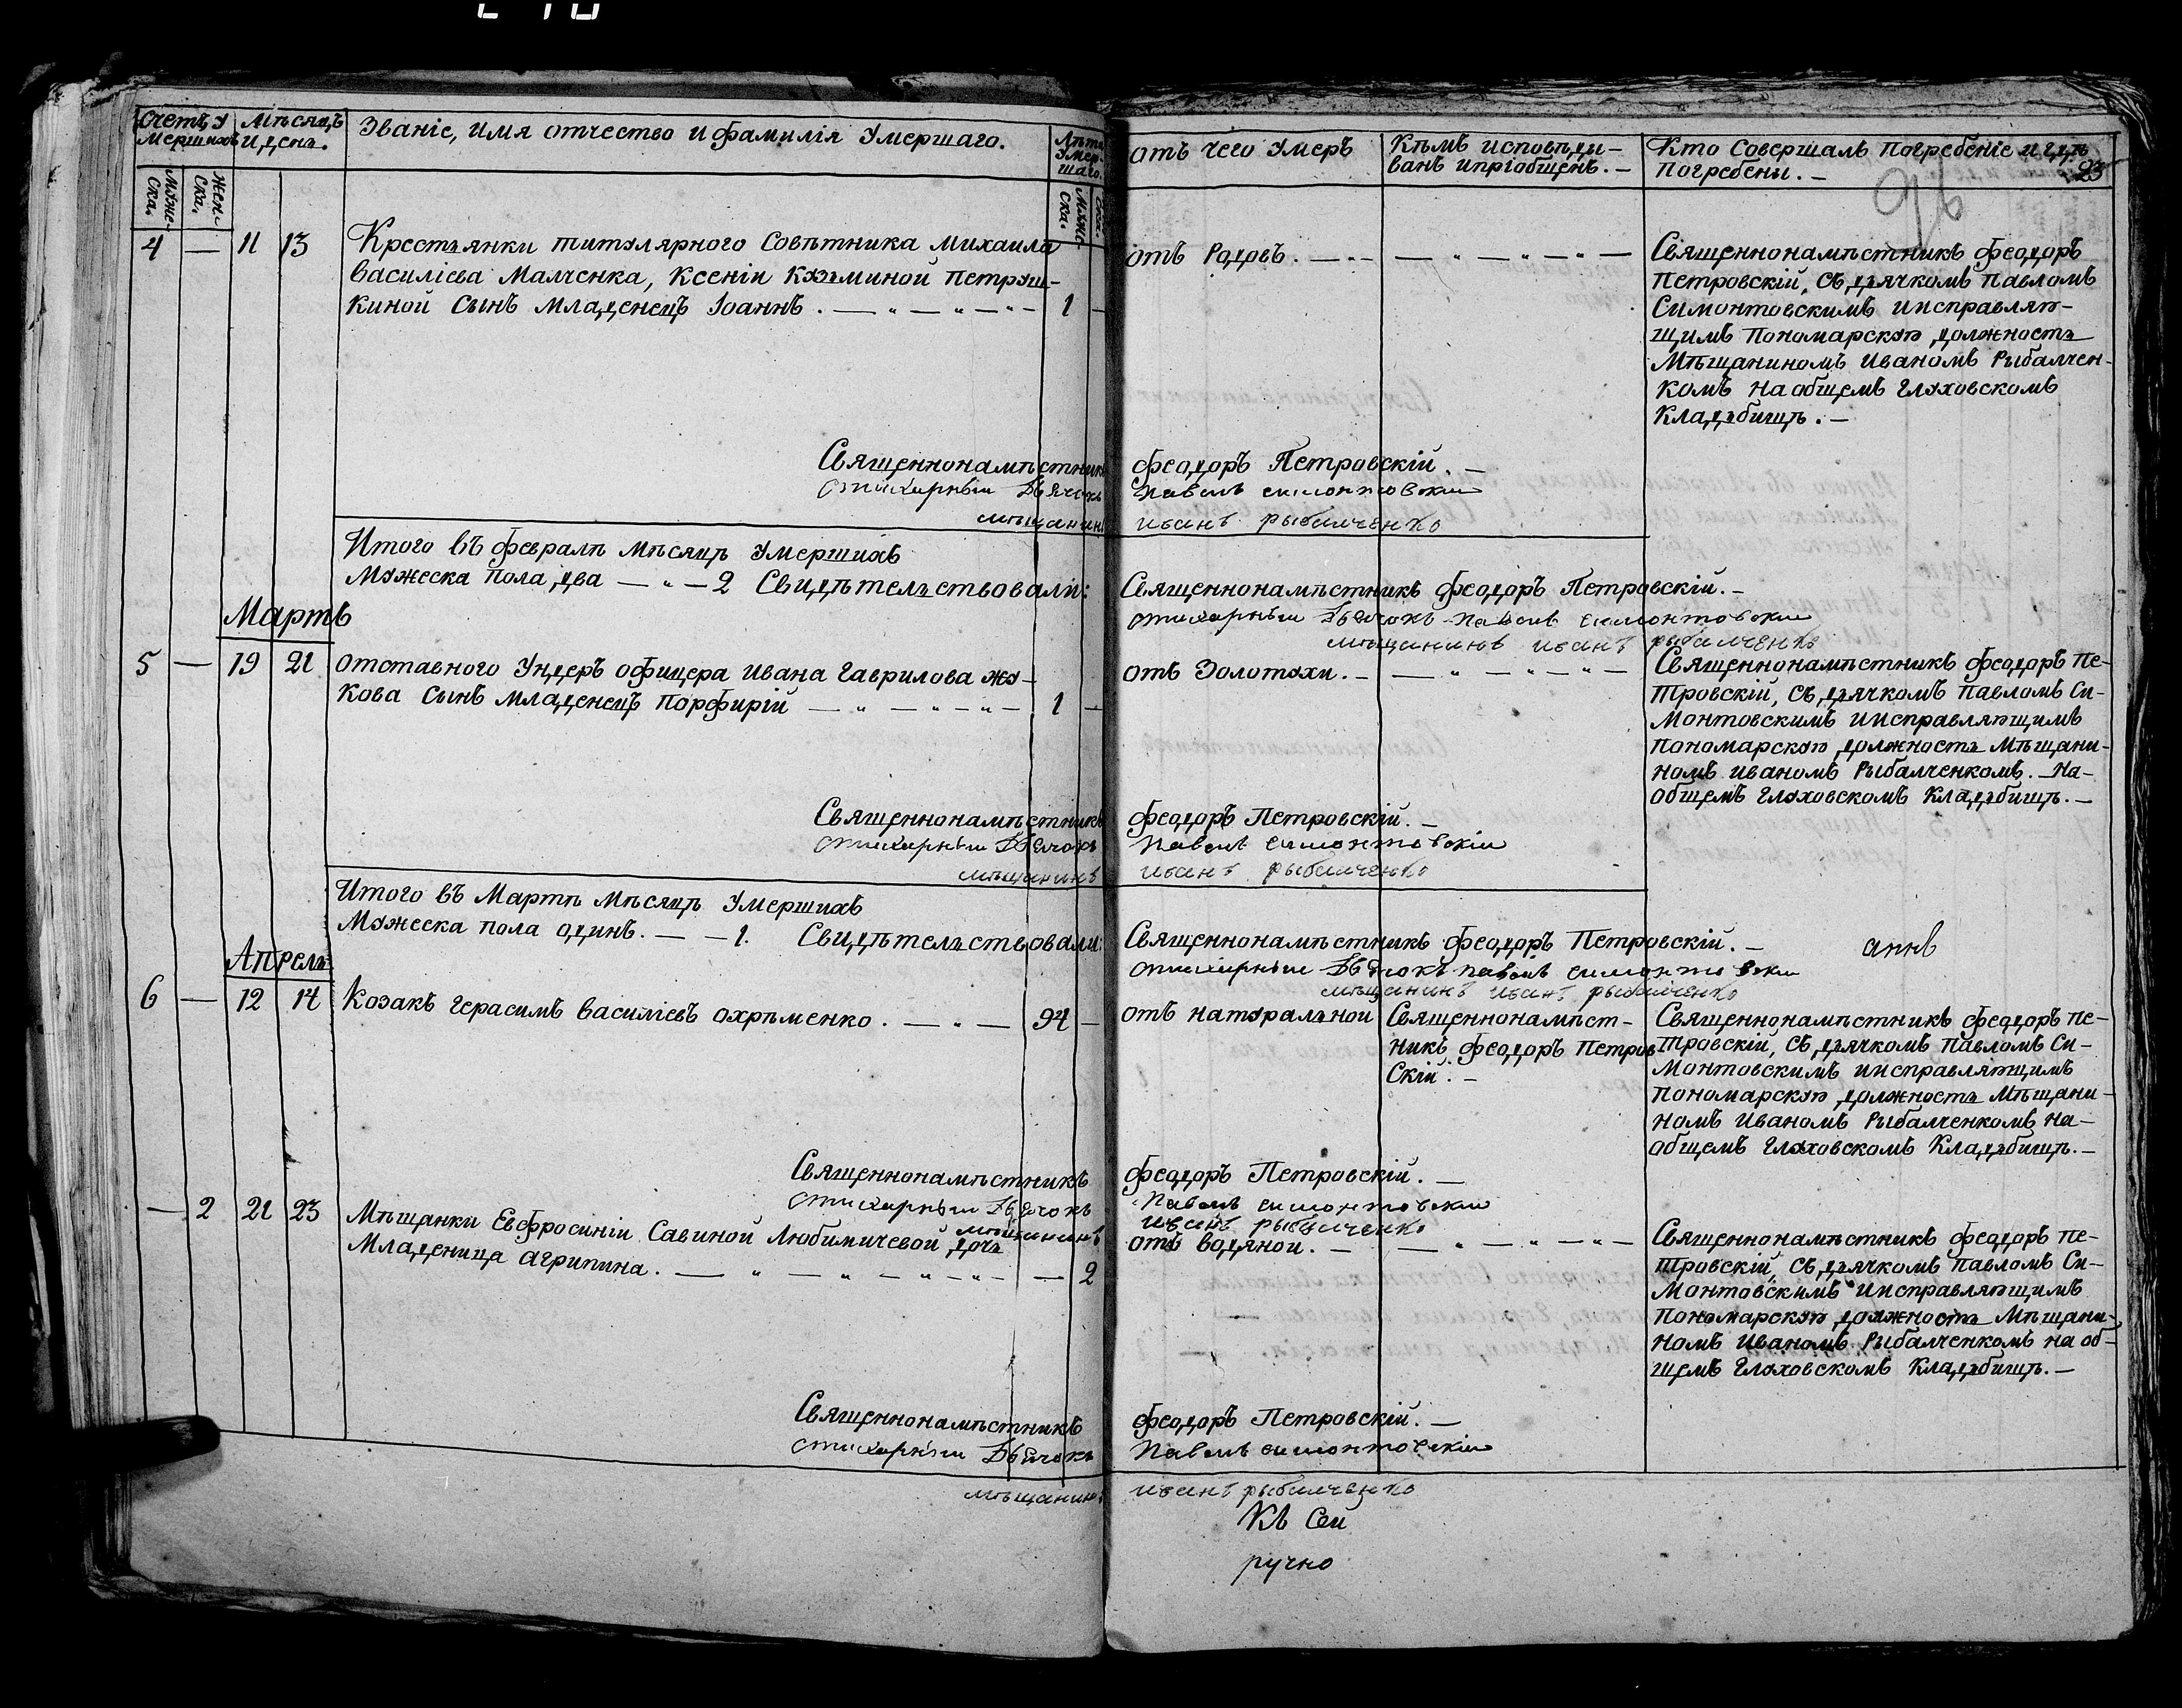 Счетъ У
мершихъ
Мѣсяцъ
И день.
Званіе, имя отчество и фамилія Умершаго.
Лѣта
Умер-
шаго.
Муже-
ска.
Жен-
ска.
Муже-
ска.
4 — 11 13 Крестьянки титулярного Совѣтника Михаила
Василіева Малченка, Ксеніи Кузьминой Петруш-
киной Сынъ Младенецъ Іоаннъ . — 1 —
Священнонамѣстникъ
Стихарный Дьячокъ
мѣщанинъ
Итого въ февралѣ мѣсяцѣ Умершихъ
Мужеска пола два — " — 2 Свидѣтельствовали:
Мартъ
5 — 19 21 Отставного Ундеръ офицера Ивана Гаврилова Жу-
кова Сынъ Младенецъ Порфирій — " — " — " — 1 —
Священнонамѣстникъ
Стихарный Дьячокъ
мѣщанинъ
Итого въ Мартѣ Мѣсяцѣ Умершихъ
Мужеска пола одинъ. — — 1. Свидѣтельствовали:
Апрель
6 — 12 14 Козакъ Герасимъ Василіевъ Охрѣменко . — . — 94 —
Священнонамѣстникъ
Стихарный Дьячокъ
мѣщанинъ
— 2 21 23 Мѣщанки Евфросиніи Савиной Любимичевой дочь
Младеница Агрипина . — " — " — " — " — — 2
Священнонамѣстникъ
Стихарный Дьячокъ
мѣщанинъ
Отъ чего Умеръ
Кѣмъ исповѣди-
ванъ и пріобщенъ. —
Кто Совершалъ Погребеніе и гдѣ
Погребены. —
23
96
отъ Родовъ. — — " — " — " —
Священнонамѣстникъ Феодоръ
Петровскій, Съ дьячкомъ Павломъ
Симонтовскимъ и исправляю-
щимъ Пономарскую должность
Мѣщаниномъ Иваномъ Рыбалчен-
комъ на общемъ Глуховскомъ
Кладьбищѣ. —
Феодоръ Петровскій. —
Павелъ Симонтовскій
Иванъ Рыбалченко
Священнонамѣстникъ Феодоръ Петровскій. —
Стихарный Дьячокъ Павелъ Симонтовскій
мѣщанинъ Иванъ Рыбалченко
отъ Золотухи. — — " — " — " —
Священнонамѣстникъ Феодоръ Пе-
тровскій, Съ дьячкомъ Павломъ Си-
монтовскимъ и исправляющимъ
пономарскую должность Мѣщани-
номъ Иваномъ Рыбалченкомъ. — На-
общемъ Глуховскомъ Кладьбищѣ. —
Феодоръ Петровскій. —
Павелъ Симонтовскій
Иванъ Рыбалченко
Священнонамѣстникъ Феодоръ Петровскій. —
Стихарный Дьячокъ Павелъ Симонтовскій
мѣщанинъ Иванъ Рыбалченко
отъ натуральной
Священнонамѣст-
никъ Феодоръ Петров
Скій. —
Священнонамѣстникъ Феодоръ Пе-
тровскій, Съ дьячкомъ Павломъ Си-
монтовскимъ и исправляющимъ
пономарскую должность Мѣщани-
номъ Иваномъ Рыбалченкомъ на-
общемъ Глуховскомъ Кладьбищѣ. —
Феодоръ Петровскій. —
Павелъ Симонтовскій
Иванъ Рыбалченко
отъ водяной. — — " — " — " —
Священнонамѣстникъ Феодоръ Пе-
тровскій, Съ дьячкомъ Павломъ Си-
монтовскимъ и исправляющимъ
пономарскую должность Мѣщани-
номъ Иваномъ Рыбалченкомъ на об-
щемъ Глуховскомъ Кладьбищѣ. —
Феодоръ Петровскій. —
Павелъ Симонтовскій
Иванъ Рыбалченко
Къ Сей
ручно